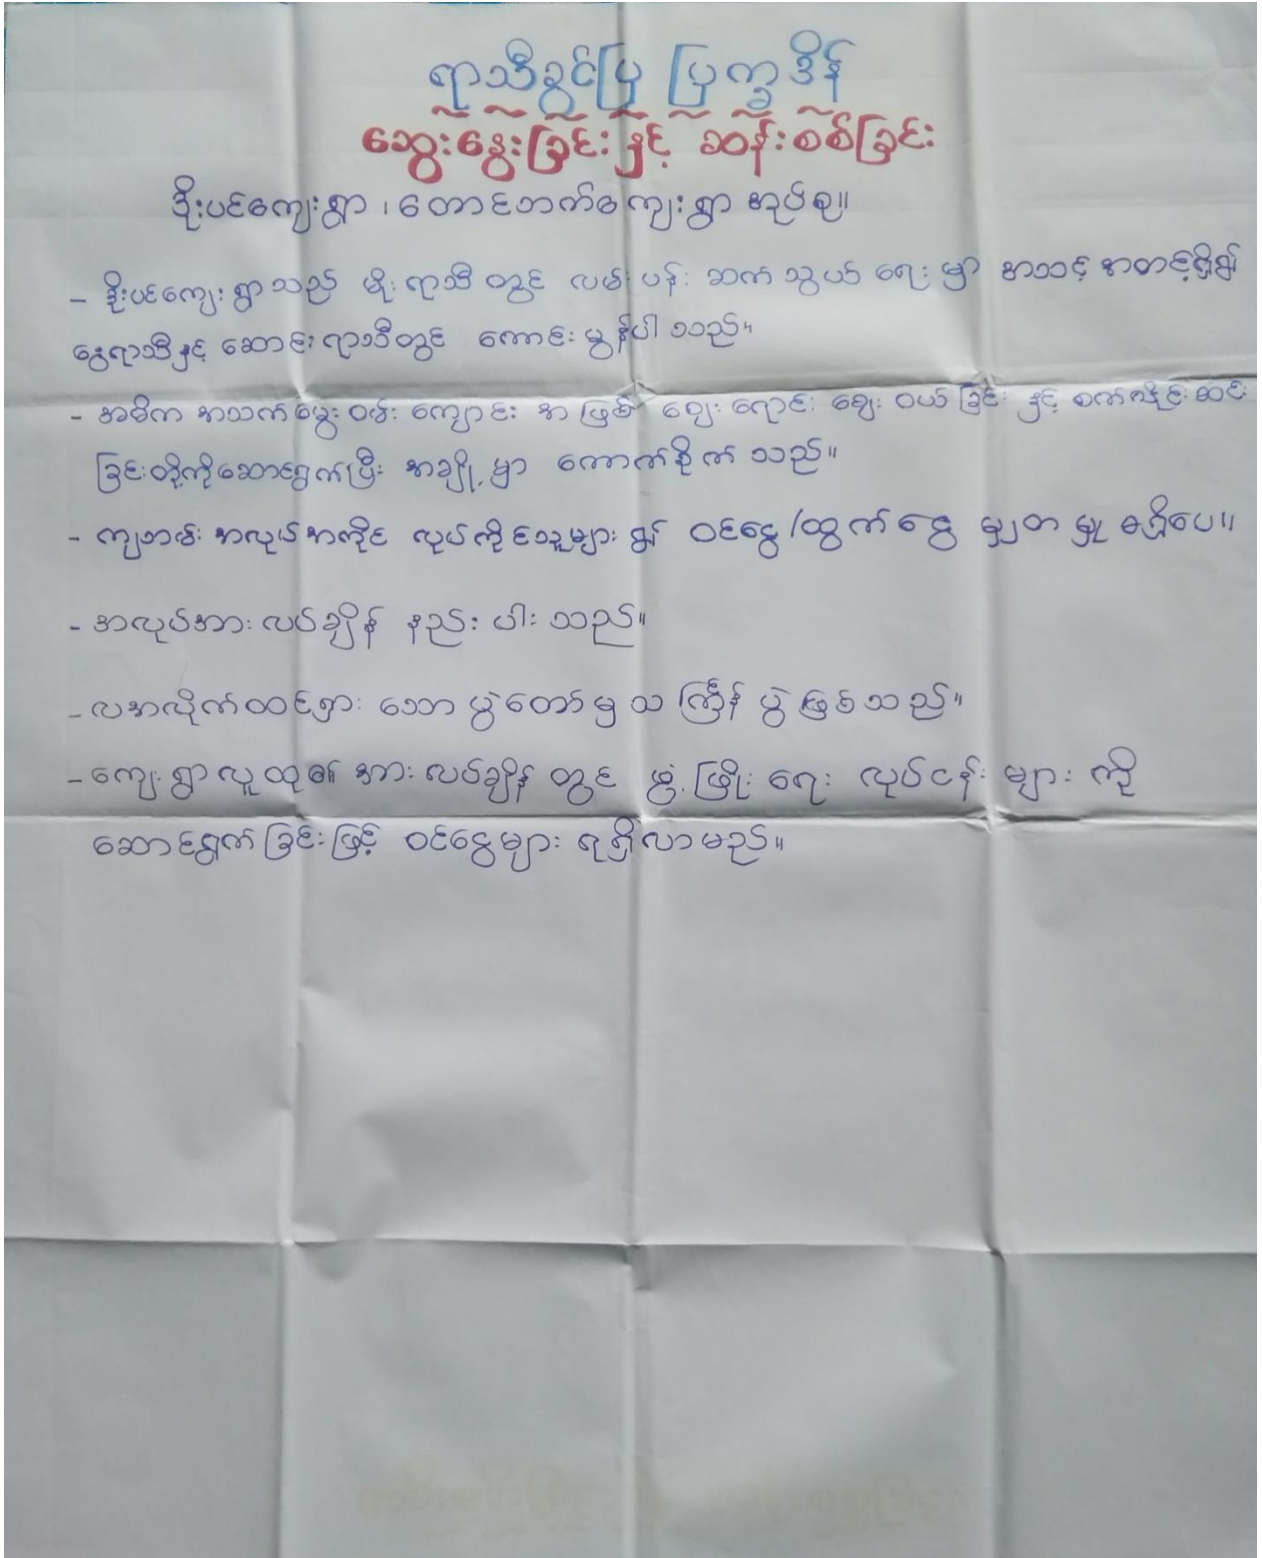 ရာသီခွင်ပြ ပြက္ခဒိန်
ဆွေးနွေးခြင်းနှင့် ဆန်းစစ်ခြင်း
ဒိုးပင်ကျေးရွာ ၊ တောင်ဘက်ကျေးရွာအုပ်စု။
- ဒိုးပင်ကျေးရွာသည် မိုးရာသီတွင် လမ်းပန်းဆက်သွယ်ရေးမှာ အသင့်အတင့်ရှိ၍
နွေရာသီနှင့် ဆောင်းရာသီတွင် ကောင်းမွန်ပါသည်။
- အဓိက အသက်မွေးဝမ်းကျောင်းအဖြစ် ဈေးရောင်းဈေးဝယ်ခြင်းနှင့် စက်လှိုင်းဆင်း
ခြင်းတို့ကိုဆောင်ရွက်ပြီး အချို့မှာ ကောက်စိုက်သည်။
- ကျဘမ်းအလုပ်အကိုင် လုပ်ကိုင်သူများ၍ ဝင်ငွေ/ထွက်ငွေ မျှတမှု မရှိပေ။
- အလုပ်အားလပ်ချိန် နည်းပါးသည်။
- လအလိုက်ထင်ရှားသောပွဲတော်မှ သင်္ကြန်ပွဲဖြစ်သည်။
- ကျေးရွာလူထု၏ အားလပ်ချိန်တွင် ဖွံ့ဖြိုးရေး လုပ်ငန်းများကို
ဆောင်ရွက်ခြင်းဖြင့် ဝင်ငွေများ ရရှိလာမည်။